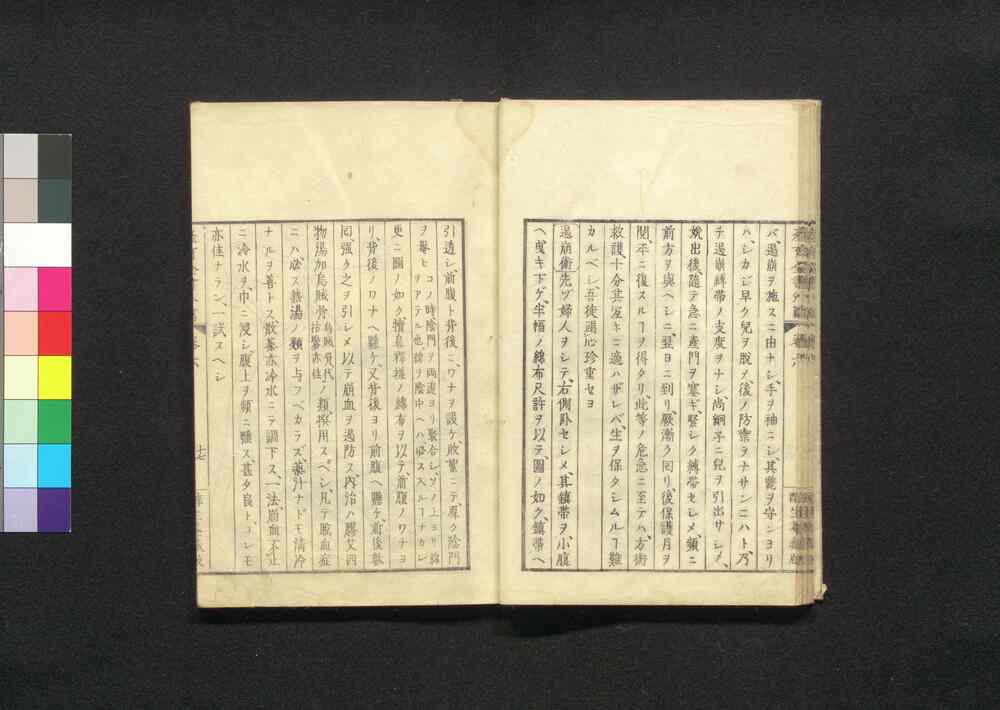 バ遏崩ヲ施スニ由ナシ手ヲ袖ニシ其斃ヲ守ンヨリ
ハシカジ早ク兒ヲ脱ヲ後ノ防禦ヲナサンニハト乃
チ遏崩縛帯ノ支度ヲナシ尚綱亭ニ兒ヲ引出サシメ
娩出後隨テ急ニ産門ヲ塞ギ堅シク縛帯セシメ頻ニ
前方ヲ與ヘシニ翌ヨニ到リ厥漸ク回リ後保護月ヲ
閲平ニ復スルヿヲ得タリ此等ノ危急ニ至テハ方術
救護十分其宜キニ適ハザレバ生ヲ保タシムルヿ難
カルベシ吾徒潜心珍重セヨ
遏崩術先ヅ婦人ヲシテ右側卧セシメ其鎮帯ヲ小腹
ヘ曳キ下ゲ半幅ノ綿布尺許ヲ以テ圖ノ如ク鎮帯ヘ
引透シ前腹ト背後ニワナヲ設ケ敗絮ニテ厚ク陰門
ヲ塞ヒ コノ時陰門ヲ両邊ヨリ聚合シソノ上ヨリ綿ヲアテル也綿ヲ陰中ヘハ必ス入ルヿナカレ
更ニ圖ノ如ク犢鼻褌様ノ綿布ヲ以テ前腹ノワナヨ
リ背後ノワナヘ纏ケ又背後ヨリ前腹ヘ纏ケ前後數
回強ク之ヲ引シメ以テ崩血ヲ遏防ス内治ハ膠艾四
物湯加烏賊骨 烏賊骨代ノ拈礬亦佳 類撰用スベシ凡テ脱血症
ニハ必ス熱湯ノ類ヲ与フベカラズ藥汁ナドモ清冷
ナルヲ善トス散藥亦冷水ニテ調下ス一法崩血不止
ニ冷水ヲ巾ニ浸シ腹上ヲ頻ニ慰ス甚タ良トコレモ
亦佳ナラン試スヘシ
十七